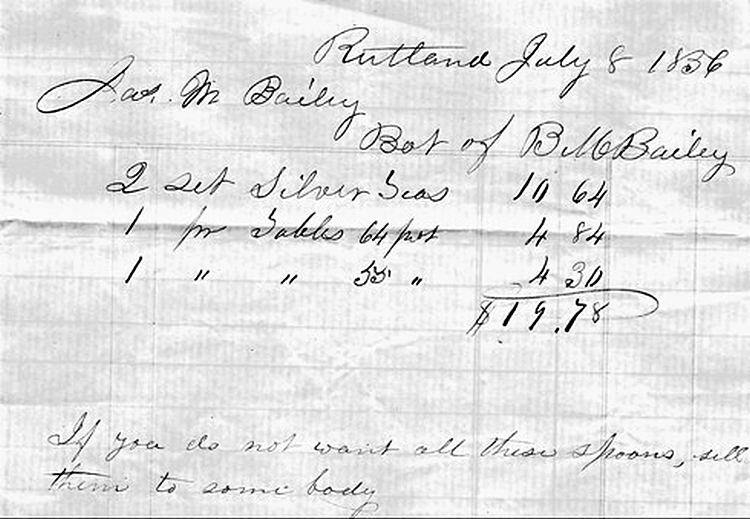 Rutland July 8 1856
Jas. M Bailey
Bot of B M Bailey
2 set Silver Teas 10 64
1 pr Tables 64 pwt 4 84
1 " " 55 " 4 30
$19.78
If you do not want all these spoons, sell
them to some body